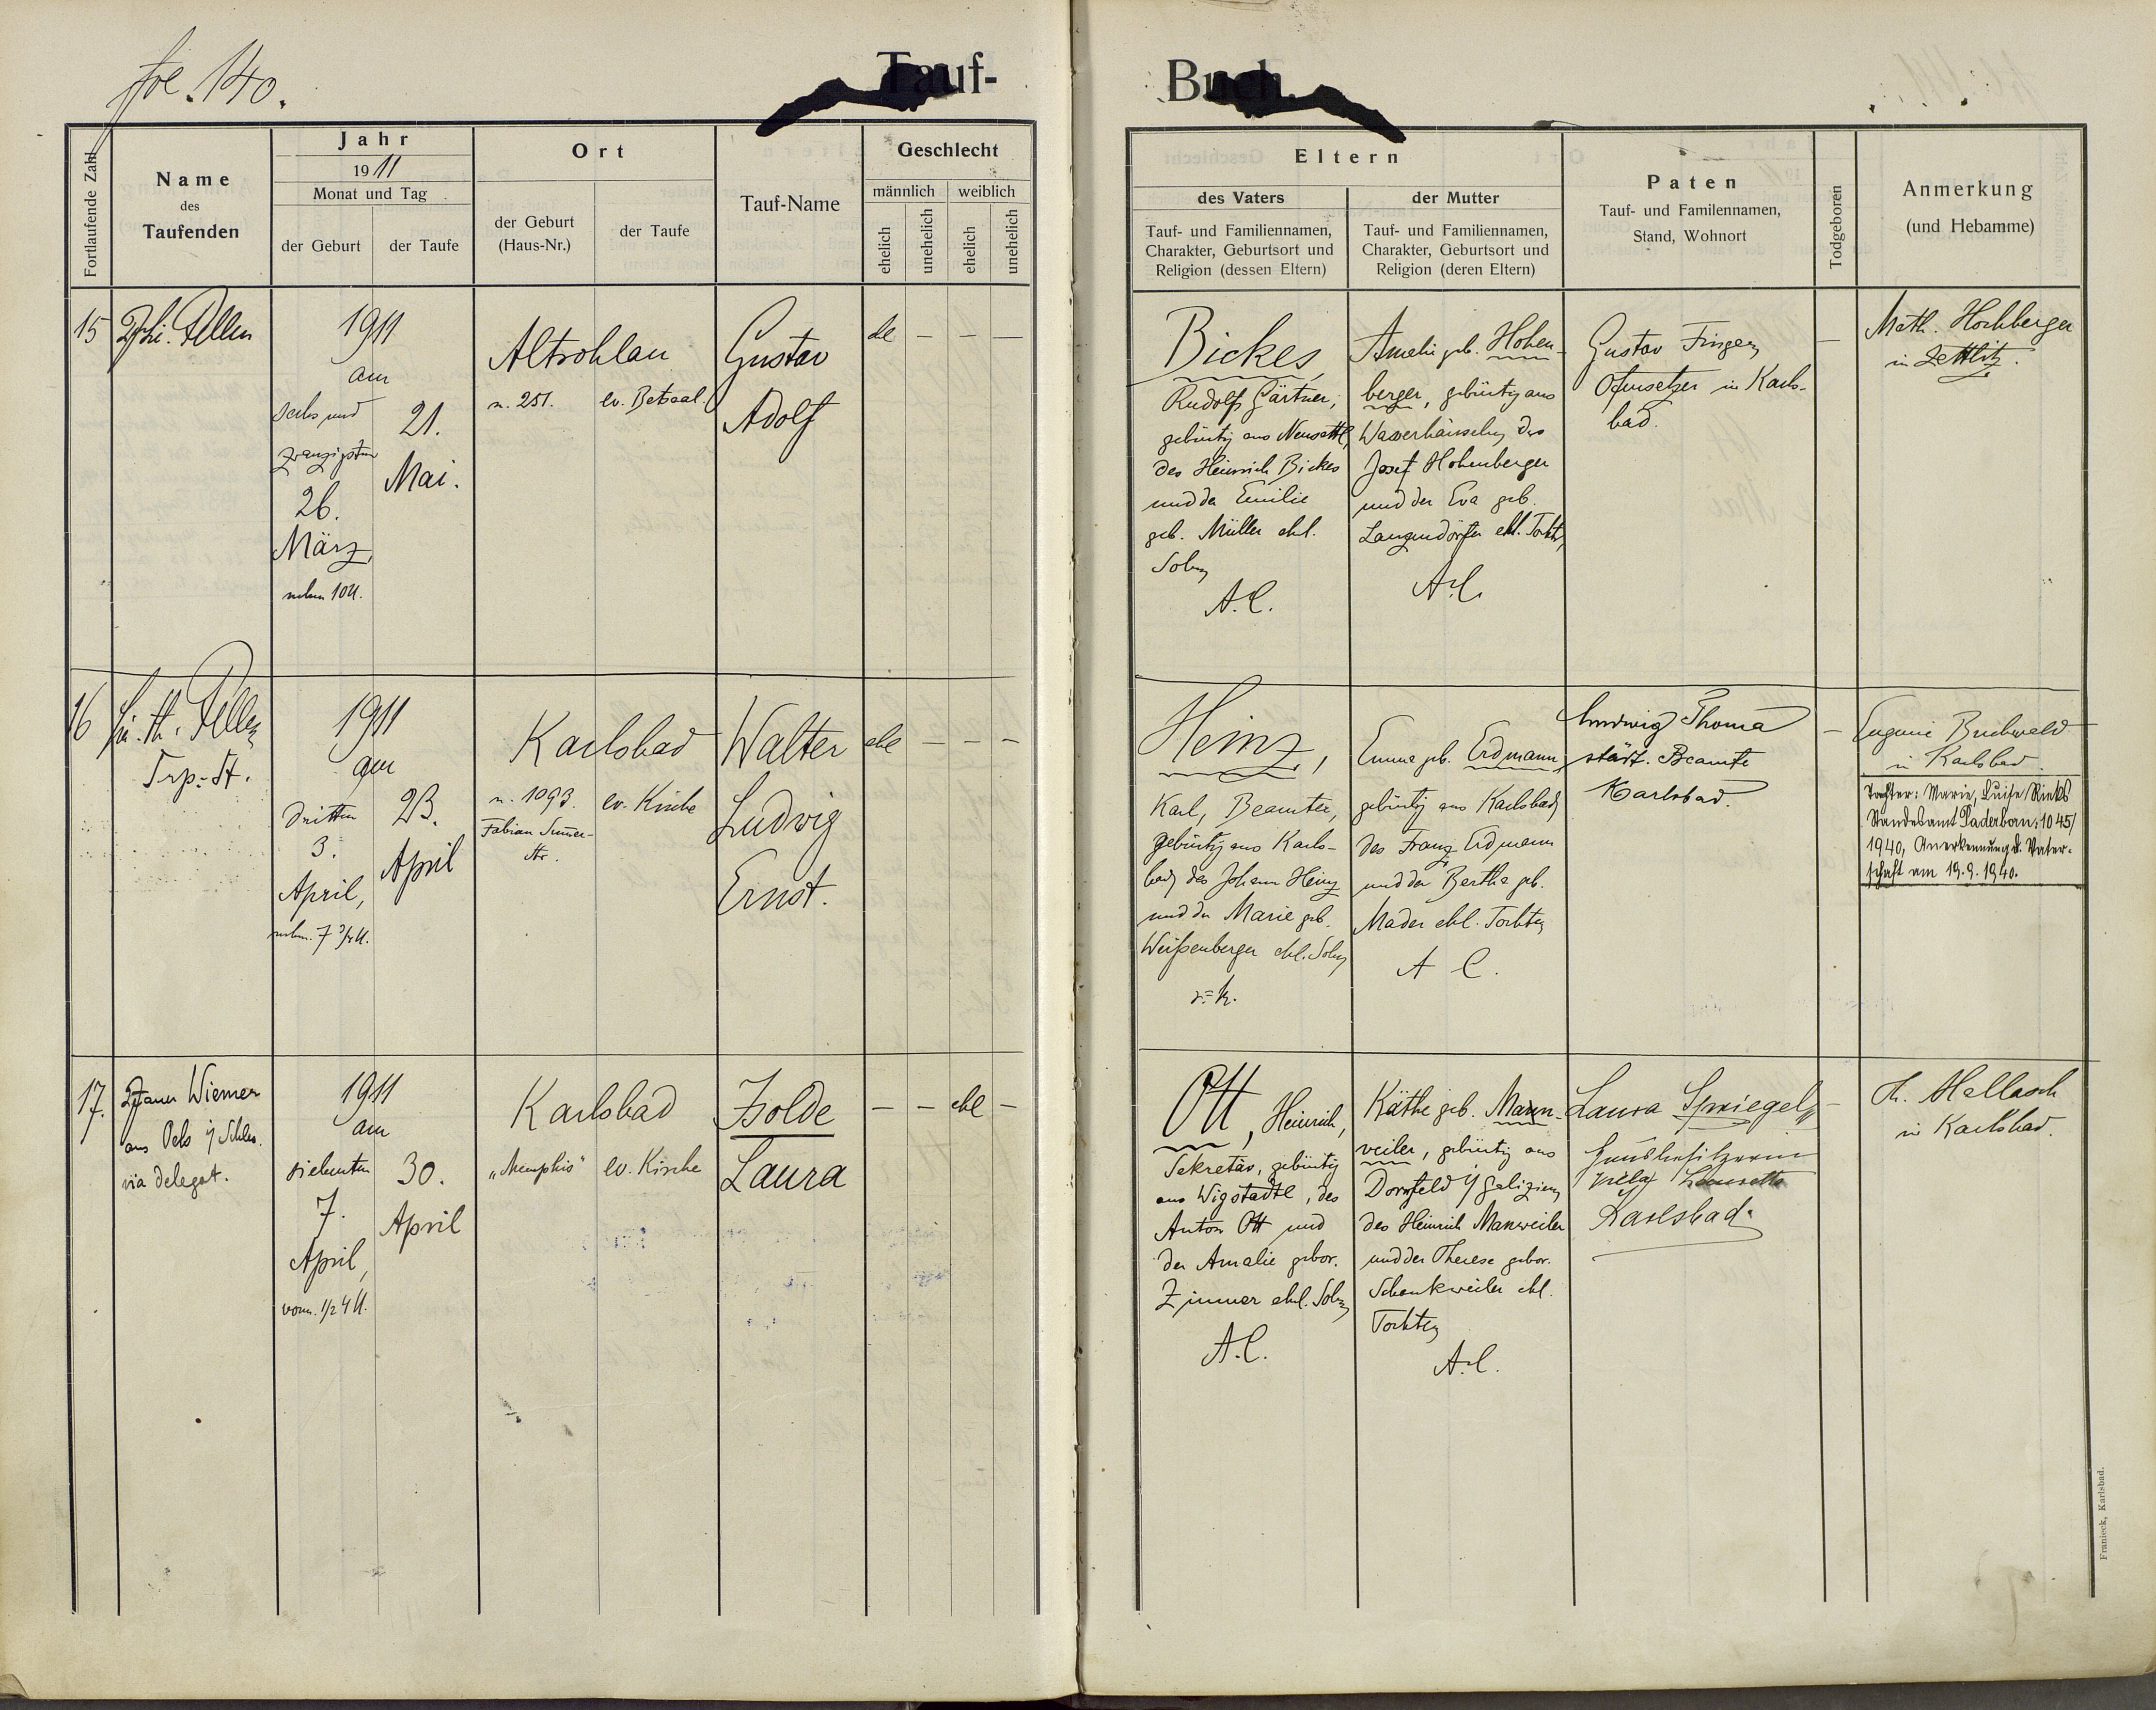 fol. 140.
Tauf-
Buch.
Fortlaufende Zahl
Name
des
Taufenden
Jahr
1911
Monat und Tag
der Geburt
der Taufe
Ort
der Geburt
(Haus-Nr.)
der Taufe
Tauf-Name
Geschlecht
männlich
weiblich
ehelich
unehelich
ehelich
unehelich
Eltern
des Vaters
Tauf- und Familiennamen,
Charakter, Geburtsort und
Religion (dessen Eltern)
der Mutter
Tauf- und Familiennamen,
Charakter, Geburtsort und
Religion (deren Eltern)
Paten
Tauf- und Familiennamen,
Stand, Wohnort
Todgeboren
Anmerkung
(und Hebamme)
15
1911
am
sechs und
zwanzigsten
26.
März,
nchm 10 U.
21.
Mai.
Altrohlau
n. 251.
ev. Betsaal.
Gustav
Adolf
— — —
Bickes,
Rudolf, Gärtner,
gebürtig aus Neusattl,
des Heinrich Bickes
und der Emilie
geb. Müller ehl.
Sohn
A.C.
Amelie geb. Hohen-
berger, gebürtig aus
des
Josef Hohenberger
und der Eva geb.
Langendörfer ehl. Tochter
A.C.
Gustav Finger,
Ofensetzer in Karls-
bad.
—
Math. Hochberger
in Zettlitz.
16
1911
am
dritten
3.
April,
nchm. 7 3/4 U.
23.
April
Karlsbad
n. 1093.
ev. Kirche
Str.
Walter
Ludwig
Ernst.
ehl — — —
Heinz,
Karl, Beamter,
gebürtig aus Karls-
bad, des Johann Heinz
und der Marie geb.
Weißenberger ehl. Sohn
r=k.
Emma geb. Erdmann,
gebürtig aus Karlsbad,
des Franz Erdmann
und der Bertha geb.
Mader ehl. Tochter
A C.
Ludwig Thoma
städt. Beamte
Karlsbad.
—
Eugenie Buchwald
in Karlsbad.
Tochter: Marie, Luise Rinks
Standesamt Paderborn: 1045/
1940, Anerkennung d. Vater-
schaft am 19.9.1940.
17.
Wiemer
aus Oels i/ Schles.
via delegat.
1911
am
siebenten
7.
April,
vorm. 1/2 4 U.
30.
April
Karlsbad
„Memphis“
ev. Kirche
Isolde
Laura
— — ehl —
Ott, Heinrich,
Sekretär, gebürtig
aus Wigstadtl, des
Anton Ott und
der Amalie gebor.
Zimmer ehl. Sohn
A.C.
Käthe geb. Mann-
weiler, gebürtig aus
Dornfeld i/ Galizien,
des Heinrich Manweiler
und der Therese gebor.
Schankweiler ehl.
Tochter
A.C.
Laura Spriegel,
Hausbesitzerin
Villa
Karlsbad.
—
A. Hellasch
in Karlsbad.
Franieck, Karlsbad.